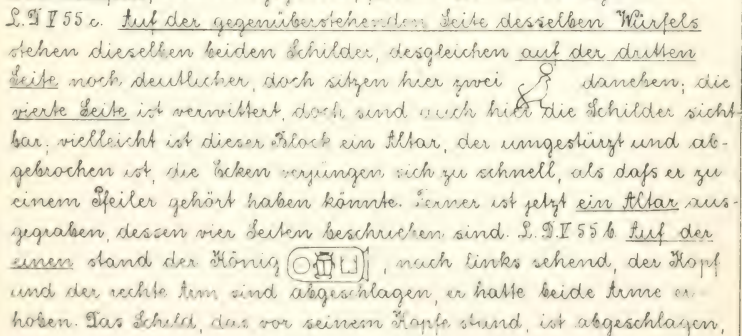 L. D. V 55 c. Auf der gegenüberstehenden Seite desselben Würfels
stehen dieselben beiden Schilder, desgleichen auf der dritten
Seite noch deutlicher, doch sitzen hier zwei daneben; die
vierte Seite ist verwittert, doch sind auch hier die Schilder sicht-
bar; vielleicht ist dieser Block ein Altar, der umgestürzt und ab-
gebrochen ist, die Ecken verjüngen sich zu schnell, als dafs er zu
einem Pfeiler gehört haben könnte. Ferner ist jetzt ein Altar aus-
gegraben, dessen vier Seiten beschrieben sind. L. D. V 55 b. Auf der
einen stand der König , nach links sehend, der Kopf
und der rechte Arm sind abgeschlagen, er hatte beide Arme er-
hoben. Das Schild, das vor seinem Kopfe stand, ist abgeschlagen,